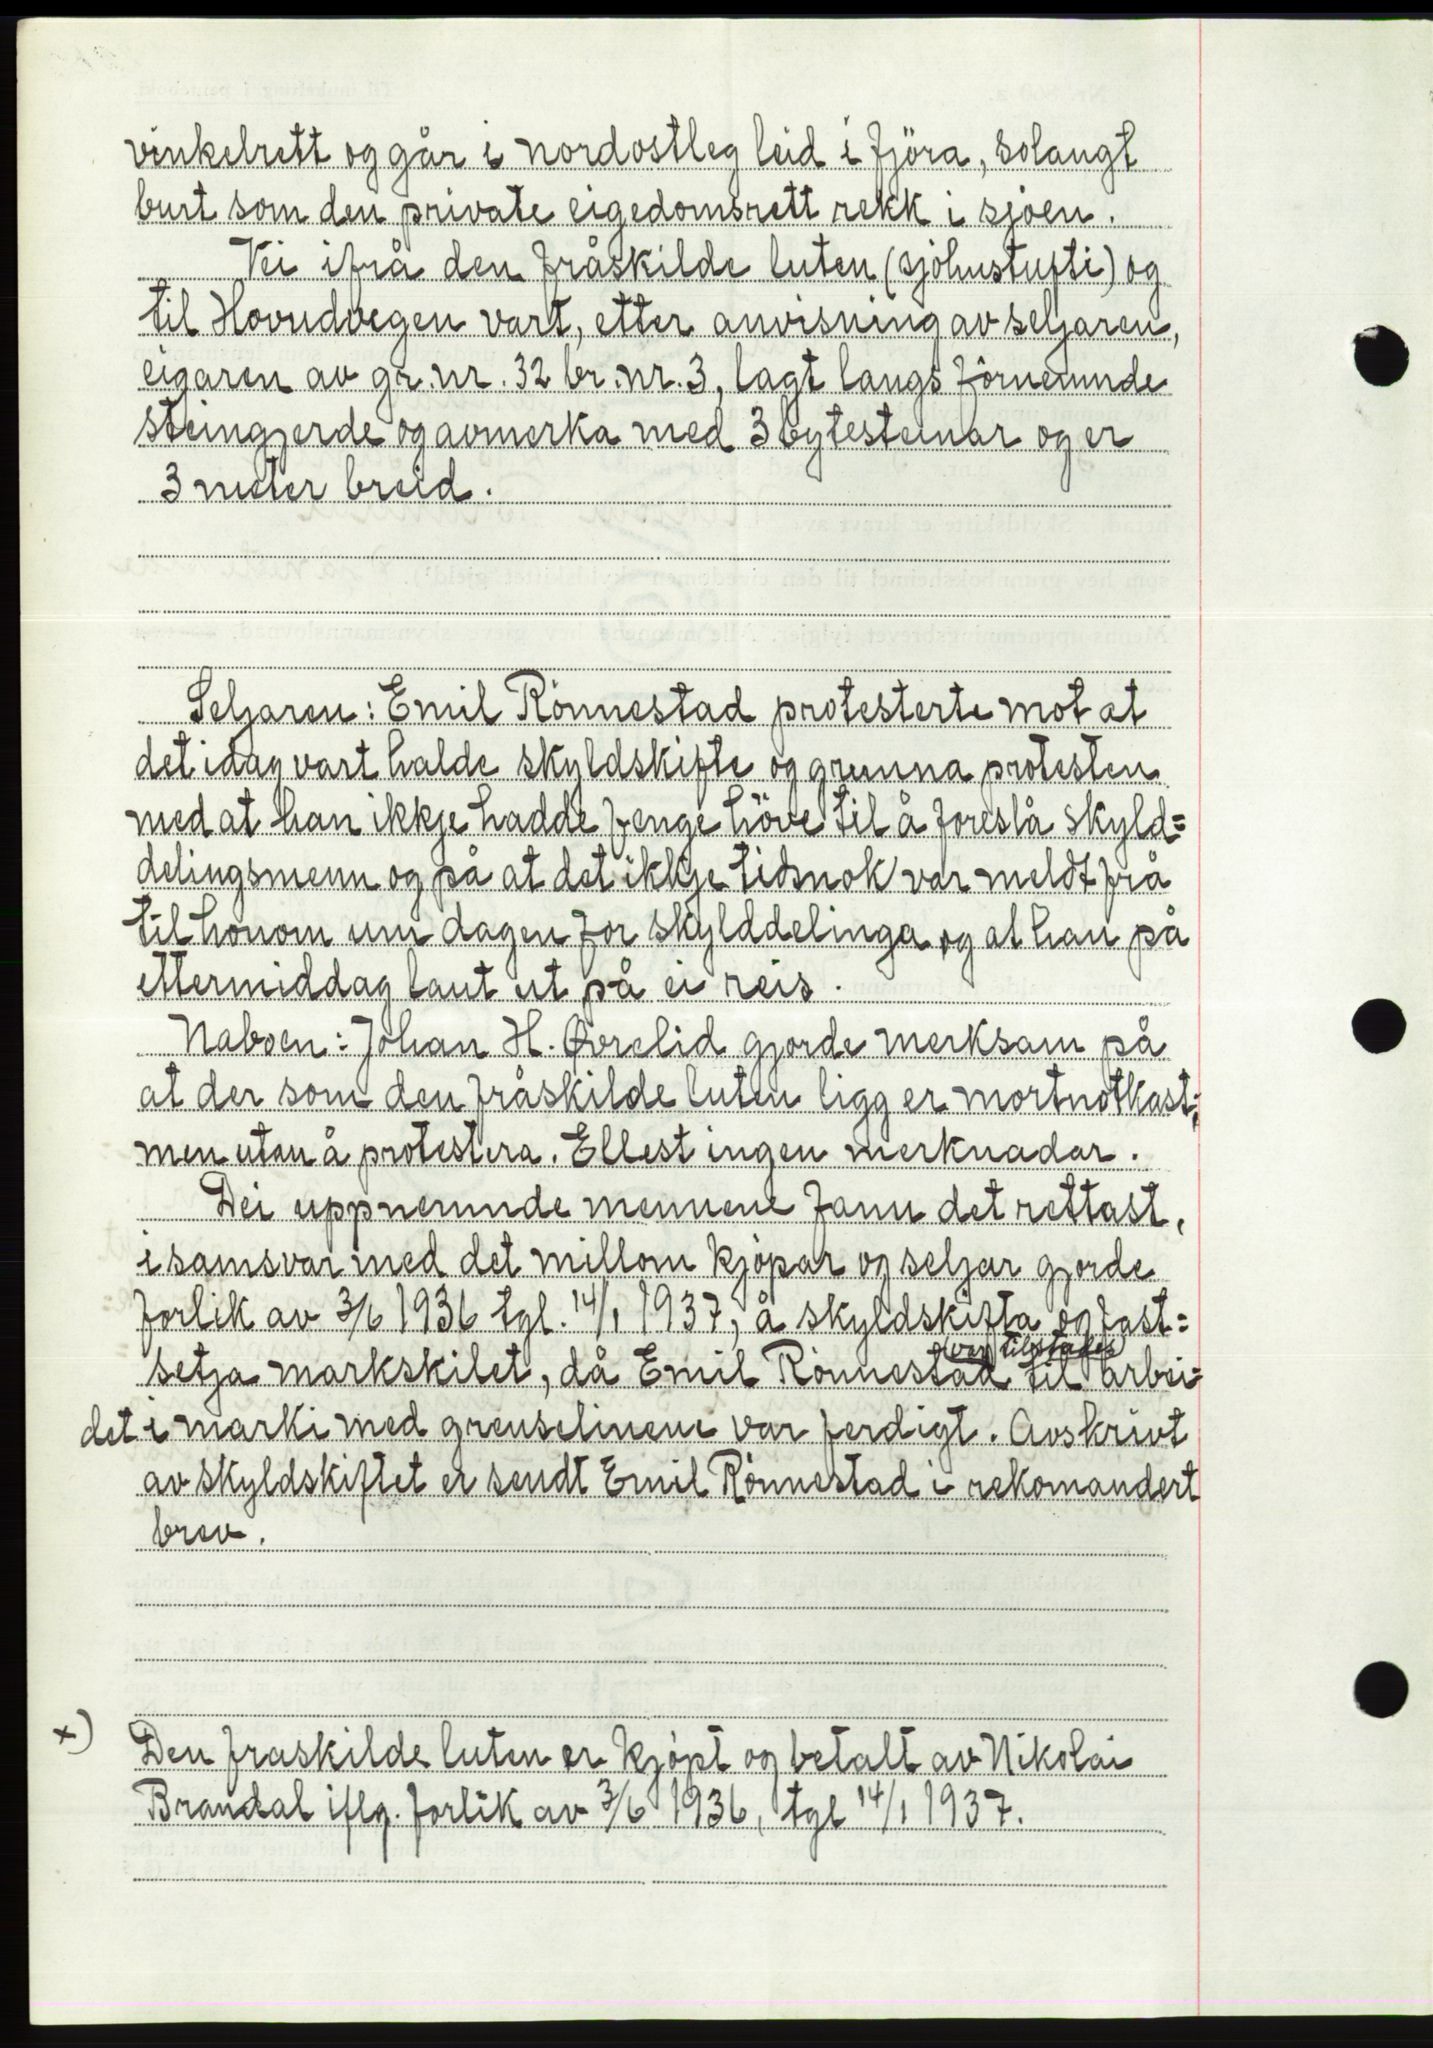 vinkelrett og går i nordostleg leid i fjöra, solangt
burt som den private eigedomsrett rekk i sjöen.
Vei ifrå den fråskilde luten (sjöhustufti) og
til Hovudvegen vart, etter anvisning av seljaren,
eigaren av gr.nr. 32 br.nr. 3, lagt langs förnemnde
steingjerde og avmerka med 3 bytesteinar og er
3 meter breid.
Seljaren: Emil Rönnestad protesterte mot at
det idag vart halde skyldskifte og grunna protesten
med at han ikkje hadde fenge höve til å foreslå skyld=
delingsmenn og på at det ikkje tidsnok var meldt frå
til honom um dagen for skylddelinga og at han på
ettermiddag laut ut på ei reis.
Naboen: Johan H. Øvrelid gjorde merksam på
at der som den fråskilde luten ligg er mortnotkast;
men utan å protestera. Ellest ingen merknadar.
Dei uppnemnde mennene fann det rettast,
i samsvar med det millom kjöpar og seljar gjorde
forlik av 3/6 1936 tgl. 14/1 1937, å skyldskifta og fast=
var tilstades
setja markskilet, då Emil Rönnestad til arbei=
det i marki med grenselinene var ferdigt. Avskrivt
av skyldskiftet er sendt Emil Rönnestad i rekomandert
brev.
x) Den fraskilde luten er kjöpt og betalt av Nikolai
Brandal iflg. forlik av 3/6 1936, tgl 14/1 1937.